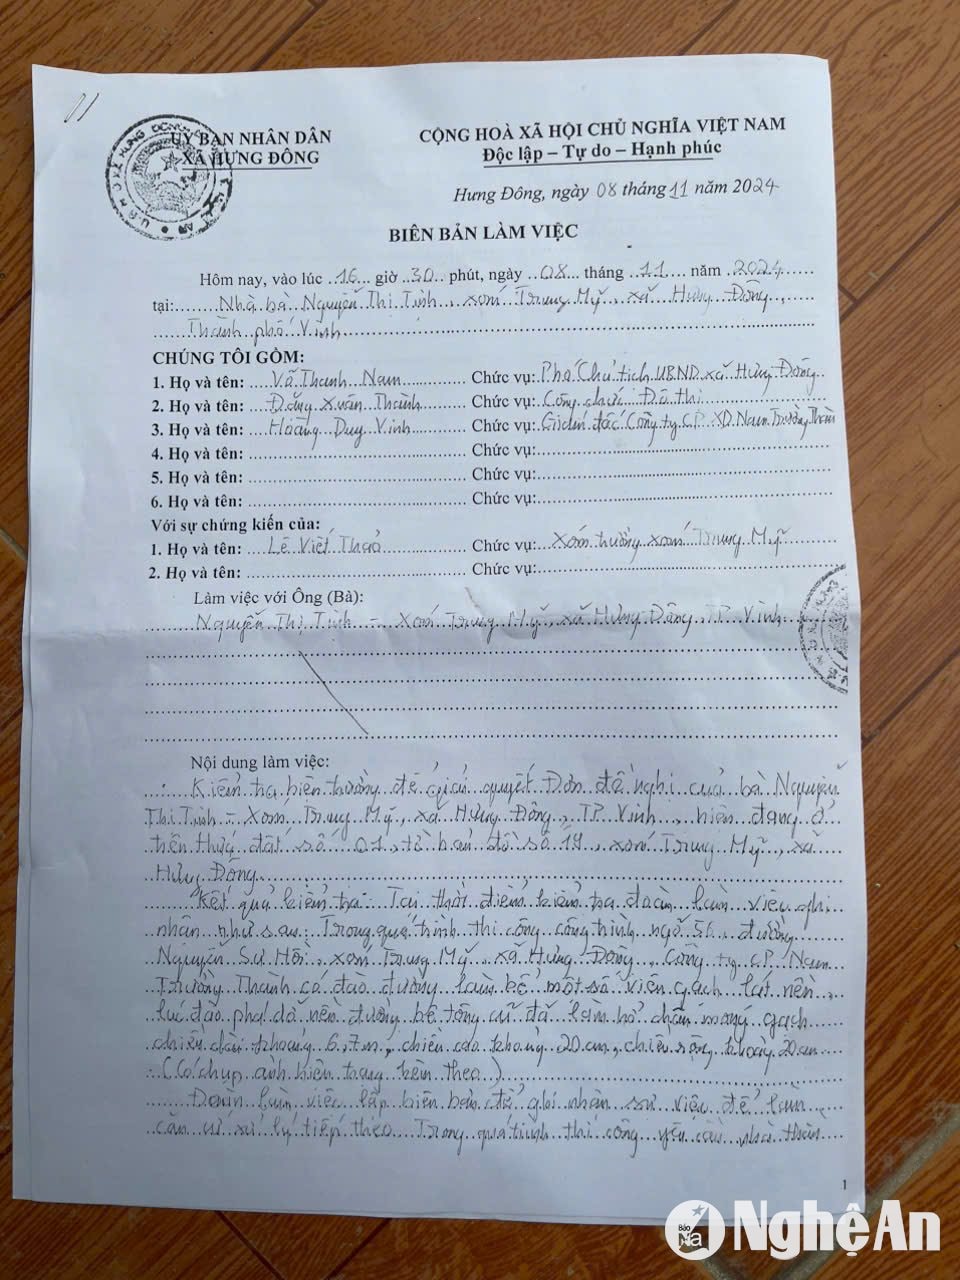 11
UỶ BAN NHÂN DÂN
XÃ HƯNG ĐÔNG
CỘNG HOÀ XÃ HỘI CHỦ NGHĨA VIỆT NAM
Độc lập – Tự do – Hạnh phúc
Hưng Đông, ngày 08 tháng 11 năm 2024
BIÊN BẢN LÀM VIỆC
Hôm nay, vào lúc 16 giờ 30 phút, ngày 08 tháng 11 năm 2024
tại: Nhà bà Nguyễn Thị Tình, xóm Trung Mỹ, xã Hưng Đông,
Thành phố Vinh
CHÚNG TÔI GỒM:
1. Họ và tên: Võ Thanh Nam Chức vụ: Phó Chủ tịch UBND xã Hưng Đông
2. Họ và tên: Đặng Xuân Thành Chức vụ: Công chức Đô thị
3. Họ và tên: Hoàng Duy Vinh Chức vụ: Giám đốc Công ty CP XD Nam Trường Thành
4. Họ và tên: Chức vụ:
5. Họ và tên: Chức vụ:
6. Họ và tên: Chức vụ:
Với sự chứng kiến của:
1. Họ và tên: Lê Viết Thảo Chức vụ: Xóm trưởng xóm Trung Mỹ
2. Họ và tên: Chức vụ:
Làm việc với Ông (Bà):
Nguyễn Thị Tình – Xóm Trung Mỹ, xã Hưng Đông, TP Vinh
Nội dung làm việc:
Kiểm tra hiện trường để giải quyết Đơn đề nghị của bà Nguyễn
Thị Tình – Xóm Trung Mỹ, xã Hưng Đông, TP Vinh, hiện đang ở
trên thửa đất số 01, tờ bản đồ số 19, xóm Trung Mỹ, xã
Hưng Đông.
Kết quả kiểm tra: Tại thời điểm kiểm tra đoàn làm việc ghi
nhận như sau: Trong quá trình thi công công trình ngõ 56, đường
Nguyễn Sư Hồi, xóm Trung Mỹ, xã Hưng Đông, Công ty CP Nam
Trường Thành có đào đường làm bể một số viên gạch lát nền,
lúc đào phá dỡ nền đường bê tông cũ đã làm hở chân móng gạch
chiều dài khoảng 6,7m, chiều cao khoảng 20cm, chiều rộng khoảng 20cm
(Có chụp ảnh hiện trạng kèm theo)
Đoàn làm việc lập biên bản để ghi nhận sự việc để làm
căn cứ xử lý tiếp theo. Trong quá trình thi công yêu cầu nhà thầu
1
Báo Na
Nghệ An